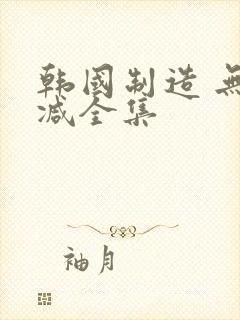 韩國制造 無
减全集
袖月